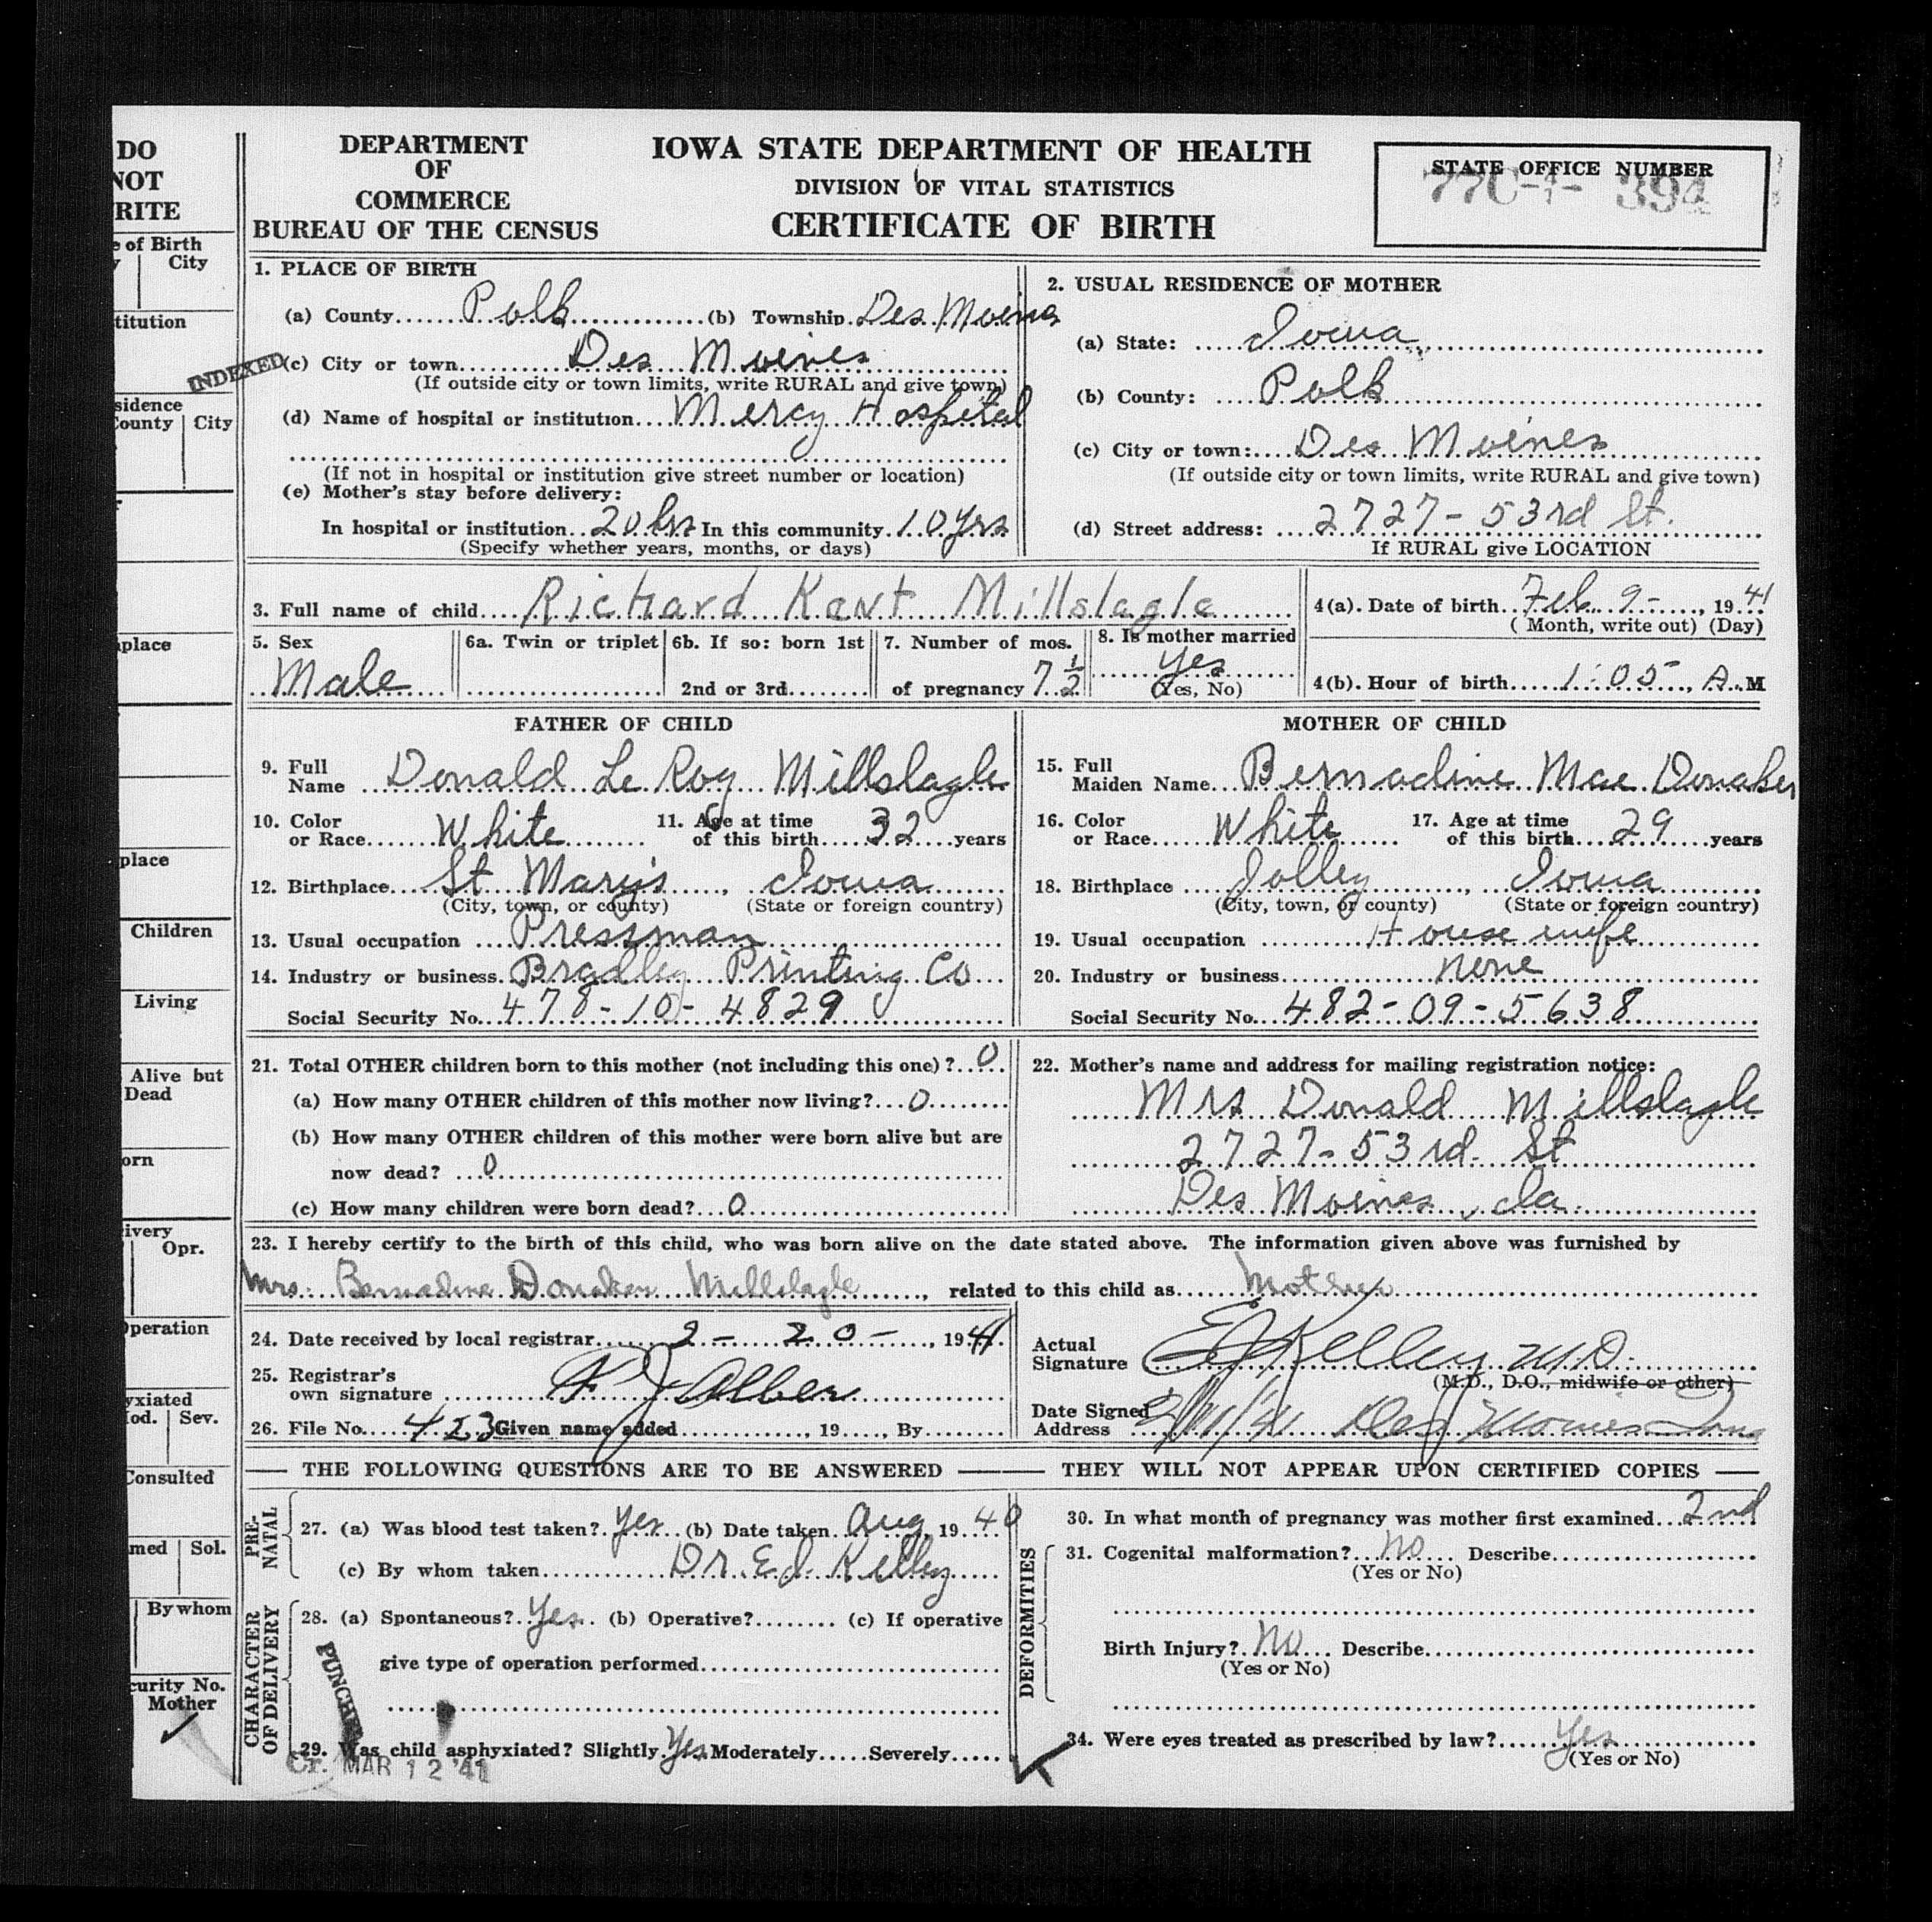 DO
NOT
RITE
e of Birth
y City
titution
sidence
County City
r
nplace
place
Children
Living
Alive but
Dead
orn
ivery
Opr.
Operation
yxiated
Mod. Sev.
Consulted
med Sol.
By whom
curity No.
Mother
DEPARTMENT
OF
COMMERCE
BUREAU OF THE CENSUS
IOWA STATE DEPARTMENT OF HEALTH
DIVISION OF VITAL STATISTICS
CERTIFICATE OF BIRTH
STATE OFFICE NUMBER
394
INDEXED
1. PLACE OF BIRTH
(a) County Polk (b) Township Des Moines
(c) City or town Des Moines
(If outside city or town limits, write RURAL and give town)
(d) Name of hospital or institution Mercy Hospital
(If not in hospital or institution give street number or location)
(e) Mother's stay before delivery:
In hospital or institution 20 hrs In this community 10 yrs
(Specify whether years, months, or days)
2. USUAL RESIDENCE OF MOTHER
(a) State: Iowa
(b) County: Polk
(c) City or town: Des Moines
(If outside city or town limits, write RURAL and give town)
(d) Street address: 2727 - 53rd St.
If RURAL give LOCATION
3. Full name of child Richard Kent Millslagle
4(a). Date of birth Feb 9 -, 1941
(Month, write out) (Day)
5. Sex Male
6a. Twin or triplet
6b. If so: born 1st
2nd or 3rd
7. Number of mos.
of pregnancy 7 1/2
8. Is mother married
Yes
(Yes, No)
4(b). Hour of birth 1:05, A.M
FATHER OF CHILD
9. Full
Name Donald Le Roy Millslagle
10. Color
or Race White
11. Age at time
of this birth 32 years
12. Birthplace St Mary's, Iowa
(City, town, or county) (State or foreign country)
13. Usual occupation Pressman
14. Industry or business Bradley Printing Co
Social Security No. 478-10-4829
MOTHER OF CHILD
15. Full
Maiden Name Bernadine Mae Donaker
16. Color
or Race White
17. Age at time
of this birth 29 years
18. Birthplace Jolley, Iowa
(City, town, or county) (State or foreign country)
19. Usual occupation House wife
20. Industry or business none
Social Security No. 482-09-5638
21. Total OTHER children born to this mother (not including this one)? 0
(a) How many OTHER children of this mother now living? 0
(b) How many OTHER children of this mother were born alive but are
now dead? 0
(c) How many children were born dead? 0
22. Mother's name and address for mailing registration notice:
Mrs Donald Millslagle
2727 - 53rd. St
Des Moines, Ia.
23. I hereby certify to the birth of this child, who was born alive on the date stated above. The information given above was furnished by
Mrs. Bernadine Donaker Millslagle, related to this child as Mother
24. Date received by local registrar 2 - 20 -, 1941
25. Registrar's
own signature F J Alber
26. File No. 423 Given name added , 19 , By
Actual
Signature EJ Kelley M.D.
(M.D., D.O., midwife or other)
Date Signed
Address Des Moines Iowa
THE FOLLOWING QUESTIONS ARE TO BE ANSWERED — THEY WILL NOT APPEAR UPON CERTIFIED COPIES
PRE-
NATAL
27. (a) Was blood test taken? Yes (b) Date taken Aug, 1940
(c) By whom taken Dr. E.J. Kelley
CHARACTER
OF DELIVERY
28. (a) Spontaneous? Yes (b) Operative? (c) If operative
give type of operation performed
PUNCHED
29. Was child asphyxiated? Slightly Yes Moderately Severely
Cr. MAR 12 '41
30. In what month of pregnancy was mother first examined 2nd
DEFORMITIES
31. Cogenital malformation? No Describe
(Yes or No)
Birth Injury? No Describe
(Yes or No)
34. Were eyes treated as prescribed by law? Yes
(Yes or No)